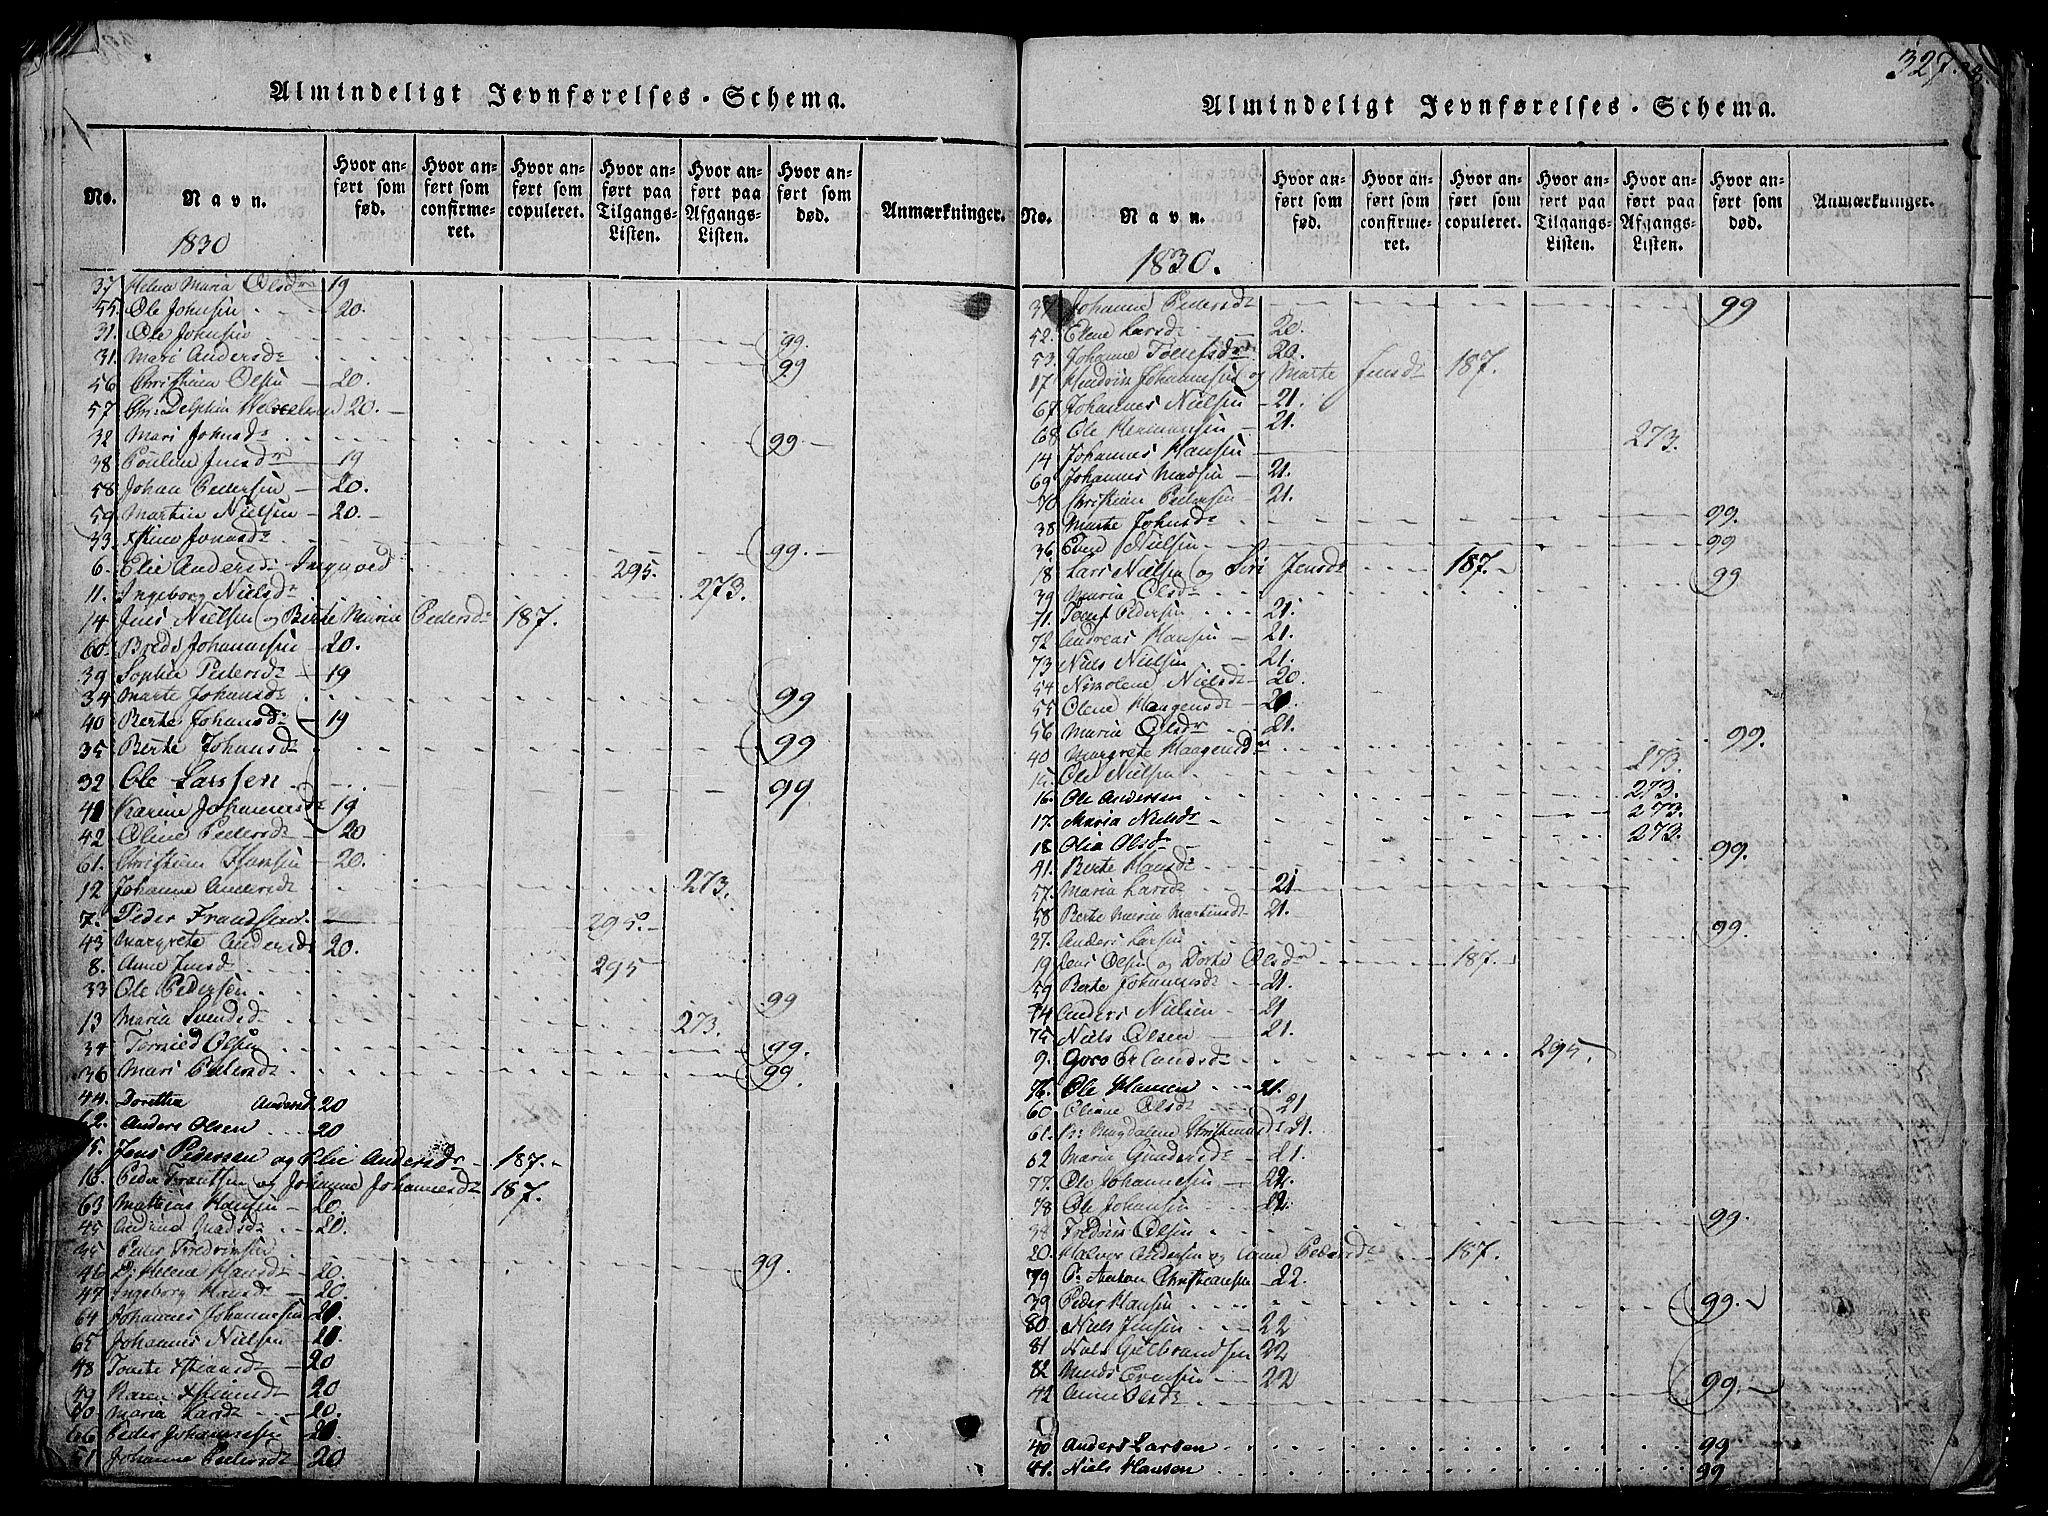 327.
Almindeligt Jevnførelses-Schema.
No. Navn. Hvor anført som fød. Hvor anført som confirmeret. Hvor anført som copuleret. Hvor anført paa Tilgangs-Listen. Hvor anført paa Afgangs-Listen. Hvor anført som død. Anmærkninger.
1830
37 Helena Maria Olsdr 19
55. Ole Johnsen 20.
31. Ole Johnsen 99.
31. Mari Andersdr 99
56 Christian Olsen 20.
57 Chr: Delphin 20.
32 Mari Johnsdr 99
38 Pouline Jensdr 19
58 Johan Pedersen 20.
59 Martin Nielsen 20.
33. Stine Jonasdr 99.
6. Elie Andersdr 295.
11. Ingeborg Nielsdr 273.
14 Jens Nielsen og Birte Marie Pedersdr 187.
60. Brede Johannesen 20.
39 Sophie Pedersdr 19
34 Marte Johansdr 99
40 Berte Johansdr 19
35 Berte Johansdr 99
32 Ole Larssen 99
41 Karine Johannesdr 19
42 Oline Pedersdr 20
61. Christian Hansen 20.
12 Johanne Andersdr 273.
7. Peder Frandsen 295.
43 Margrete Andersdr 20.
8. Anne Jensd 295
33 Ole Pedersen 99
13 Maria Svendsdr 273.
34 Olsen 99.
36 Mari Pedersdr 99.
44. Dorethea Andersd. 20
62. Anders Olsen 20
15. Jens Pedersen og Elie Andersdr 187.
16. Peder Frantsen og Johanne Johannesdr 187.
63 Mathias Hansen 20.
45 Madsdr 20.
35 Peder Fredriksen 99.
46 Helene Hansdr 20.
47 Ingeborg Hansdr 20.
64 Johannes Johannesen 20.
65 Johannes Nielsen 20
48 20
49 Karen 20
50 Maria Larsdr 20.
66 Peder Johannesen 20
51 Johanne Pedersdr 20
Almindeligt Jevnførelses-Schema.
No. Navn. Hvor anført som fød. Hvor anført som confirmeret. Hvor anført som copuleret. Hvor anført paa Tilgangs-Listen. Hvor anført paa Afgangs-Listen. Hvor anført som død. Anmærkninger.
1830.
37 Johanne Pedersdr 99
52. Elene Larsdr 20.
53. Johanne Tollefsdr 20.
17 Hendrik Johannesen og Marte Jensdr 187.
67. Johannes Nielsen 21.
68. Ole Hermansen 21.
14 Johannes Hansen 273.
69 Johannes Madsen 21.
70 Christian Pedersen 21.
38 Marte Johnsdr 99.
36 Even Nielsen 99
18 Lars Nielsen og Siri Jensdr 187.
39 Maria Olsdr 99
71. Pedersen 21.
72 Andreas Hansen 21.
73 Niels Nielsen 21.
54 Nicoline Nielsdr 20
55 Olene Haagensdr 20
56 Maria Olsdr 21.
40 Margrete Haagensdr 99.
15. Ole Nielsen 273.
16. Ole Andersen 273.
17. Maria Nielsdr 273.
18 Olia Olsdr 273.
41. Berte Hansdr 99.
57. Maria Larsdr 21
58 Berte Maria Martinsdr 21.
37. Anders Larsen 99.
19 Lars Olsen og Dorte Olsdr 187.
59 Berte Johannesdr 21.
74 Anders Nielsen 21
75 Niels Olsen 21.
9. Goro Erlandsdr 295.
76. Ole Hansen 21.
60 Oliane Olsdr 21
61. Magdalene 21.
62 Maria Gundersdr 21.
77. Ole Johannesen 22.
78 Ole Johansen 22.
38 Fredrik Olsen 99.
20. Halvor Andersen og Anne Pedersdr 187.
79 Christiansen 22.
39 Peder Hansen 99.
80 Niels Jensen 22
81 Niels Gulbrandsen 22
82 Mads Evensen 22
42 Anne Olsdr 99.
40 Anders Larsen 99
41. Niels Hansen 99